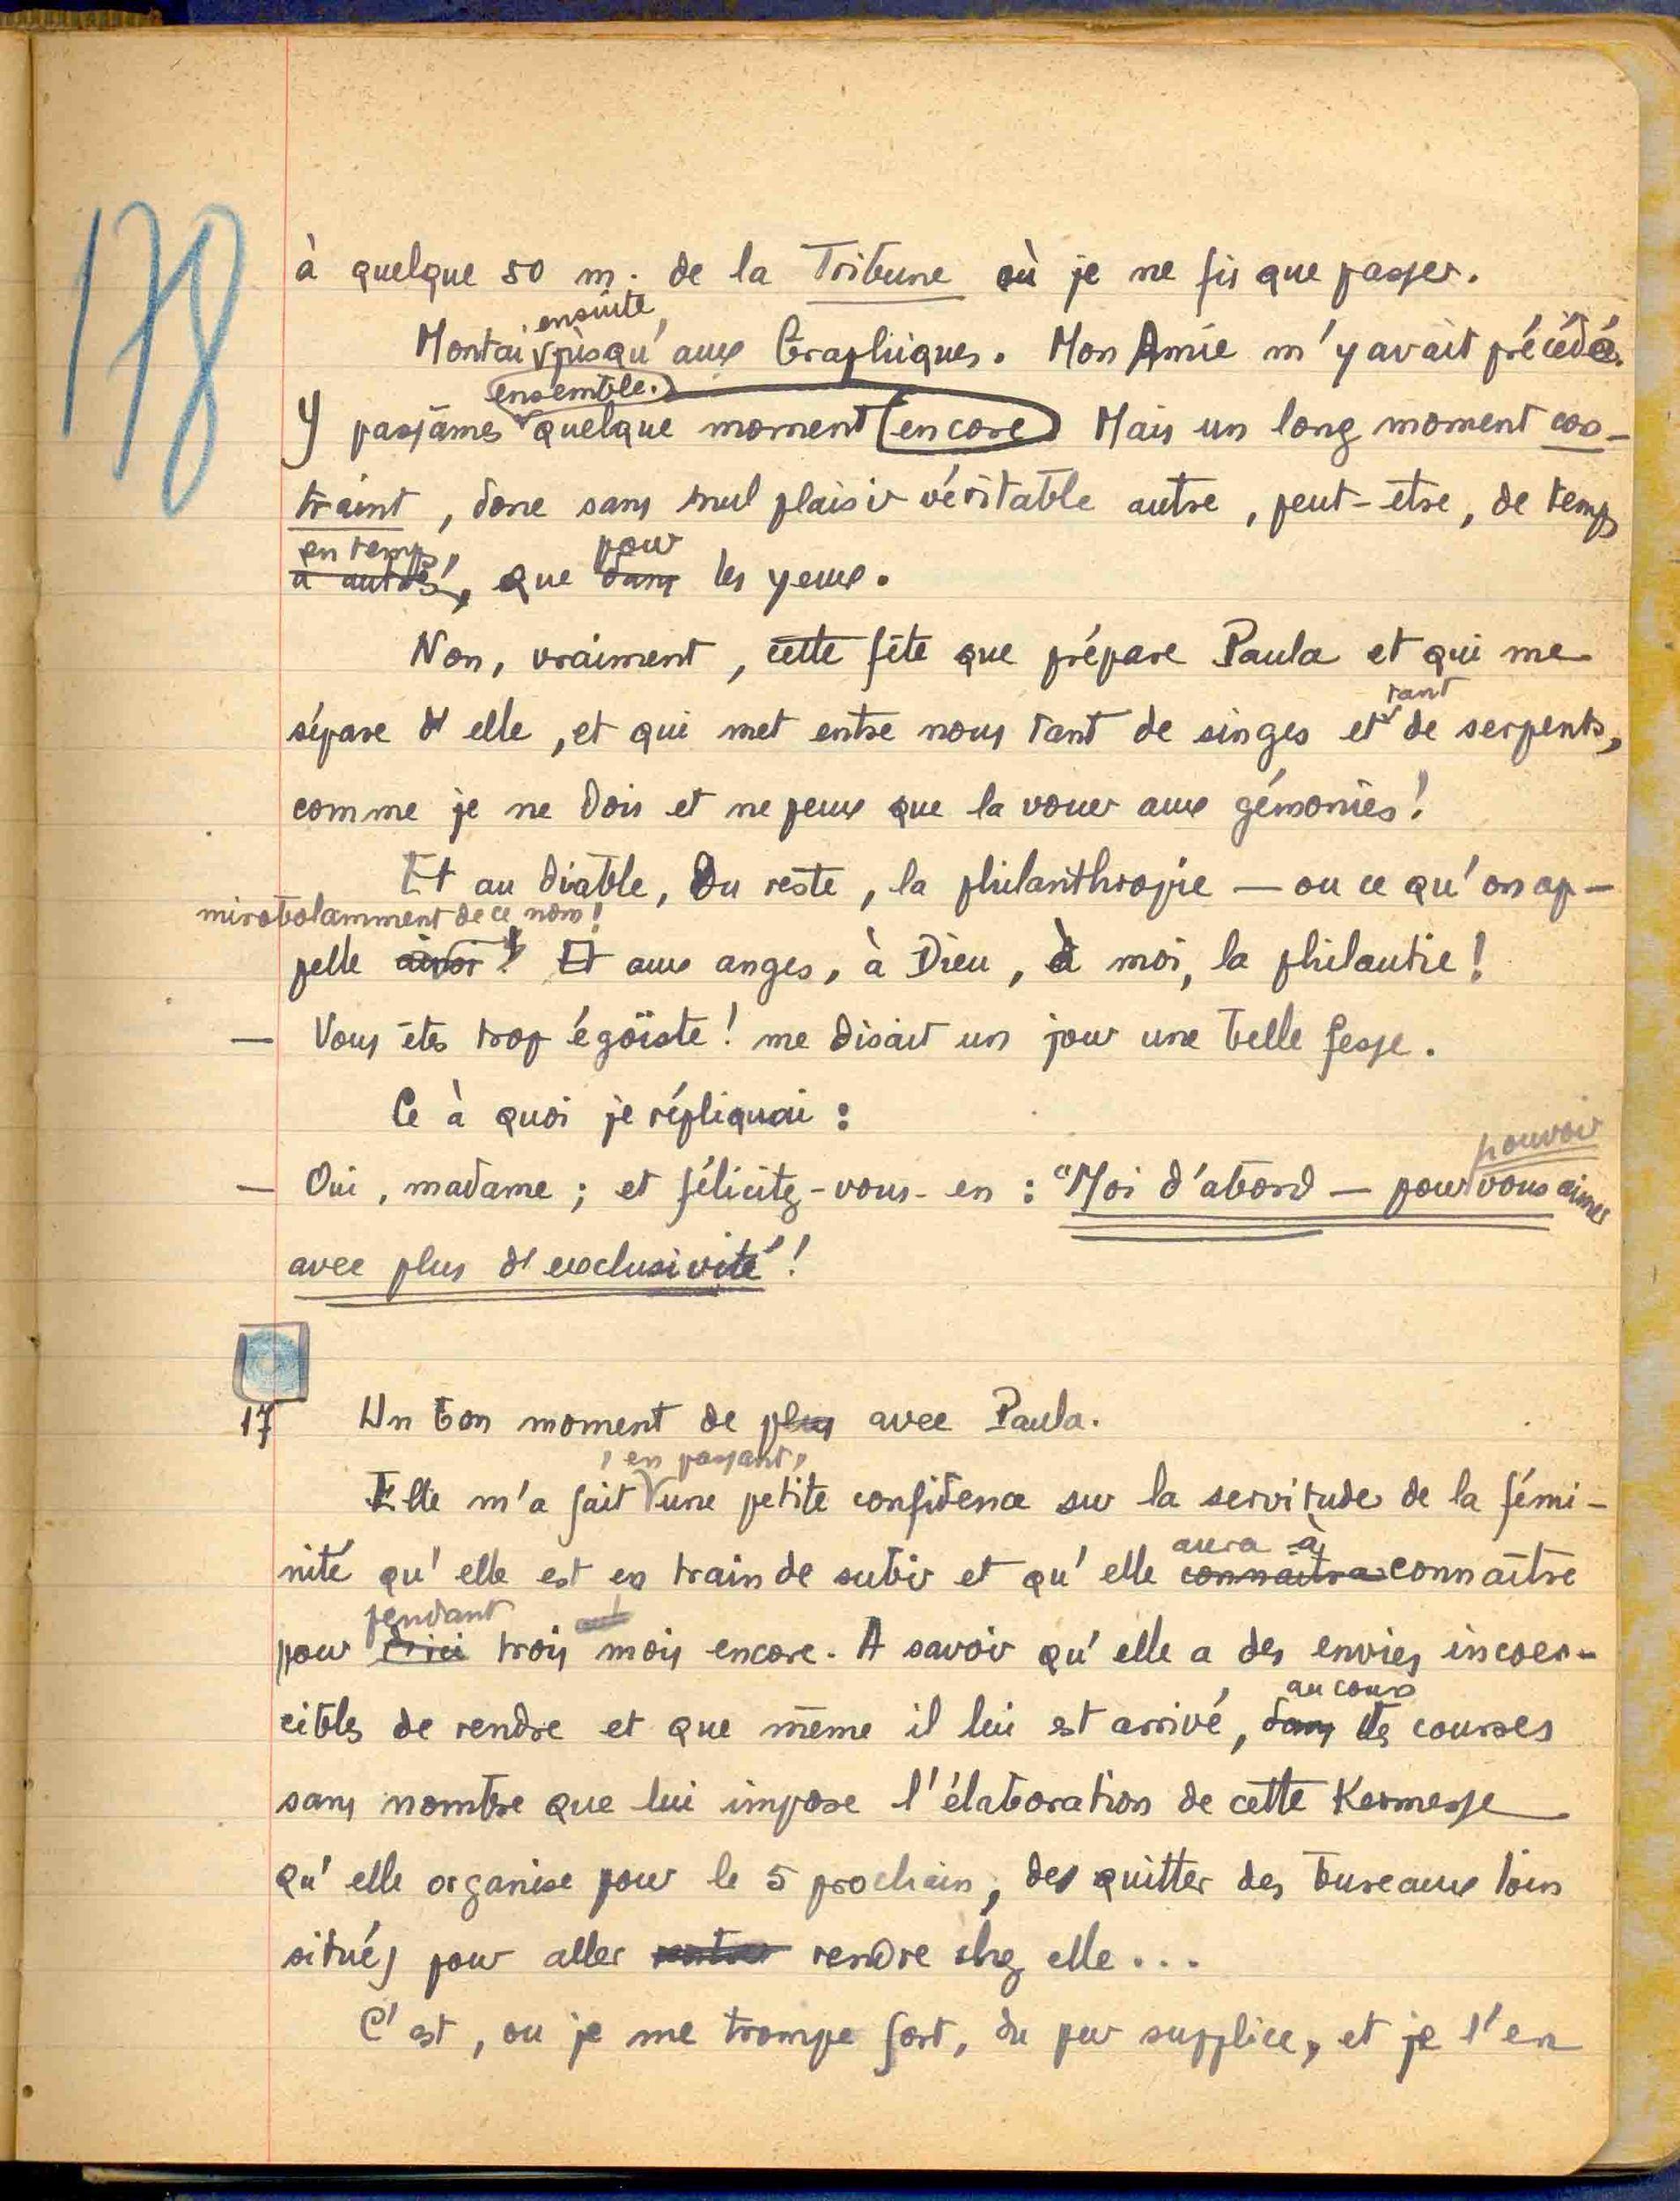 178
à quelque 50 m. de la Tribune où je ne fis que passer.
ensuite,
Montai jusqu'aux Graphiques. Mon Amie m'y avait précédé.
ensemble.
Y passâmes quelque moment encore Mais un long moment con-
traint, donc sans nul plaisir véritable autre, peut-être, de temps
en temps, pour
à autre, que dans les yeux.
Non, vraiment, cette fête que prépare Paula et qui me
tant
sépare d'elle, et qui met entre nous tant de singes et de serpents,
comme je ne dois et ne peux que la vouer aux gémonies!
Et au diable, du reste, la philanthropie — ou ce qu'on ap-
mirobolamment de ce nom!
pelle ainsi! Et aux anges, à Dieu, à moi, la philautie!
— Vous êtes trop égoïste! me disait un jour une belle fesse.
Ce à quoi je répliquai :
pouvoir
— Oui, madame; et félicitez-vous-en : "Moi d'abord — pour vous aimer
avec plus d'exclusivité"!
17 Un bon moment de plus avec Paula.
, en passant,
Elle m'a fait une petite confidence sur la servitude de la fémi-
aura à
nité qu'elle est en train de subir et qu'elle connaitra connaître
pendant
pour d'ici trois mois encore. A savoir qu'elle a des envies incoer-
au cours
cibles de rendre et que même il lui est arrivé, dans des courses
sans nombre que lui impose l'élaboration de cette Kermesse
qu'elle organise pour le 5 prochain, de quitter des bureaux loin
situés pour aller rendre chez elle...
C'est, ou je me trompe fort, du pur supplice, et je l'en